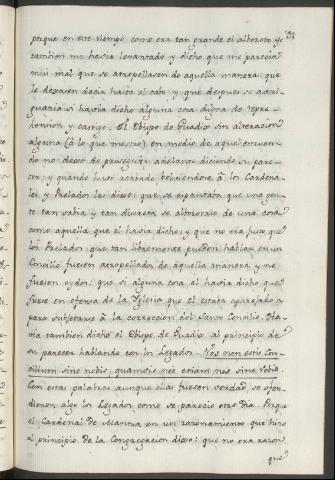 porque en este tiempo como era tan grande el alboroto yo
tambien me havia levantado y dicho que me parecia
mui mal que se atropellasen de aquella manera: que
le dexasen decir hasta el cabo, y que despues se averi-
guaria si havia dicho alguna cosa digna de repre-
hension y castigo. El Obispo de Guadix sin alteracion
alguna (à lo que mostro) en medio de aquel estruen-
do no dexo de proseguir adelante diciendo su pare-
cer; y quando huvo acabado volviendose à los Cardena-
les y Prelados les dixo: que se espantaba que una gen-
te tan sabia y tan discreta se alborotase de una cosa
como aquella que el havia dicho; y que no era justo que
los Prelados que tan libremente pueden hablar en un
Concilio fuesen atropellados de aquella manera y me
nos oidos: que si alguna cosa el havia dicho que
fuese en ofensa de la Iglesia que el estaba aparejado
para sujetarse à la correccion del Santo Concilio. Ha-
via tambien dicho el Obispo de Guadix al principio de
su parecer hablando con los Legados: Vos non estis Con-
cilium sine nobis, quamvis nec etiam nos sine vobis.
Con estas palabras aunque ellas fuesen verdad se ofen-
dieron algo los Legados como se parecio otro dia. Porque
el Cardenal de Mantua en un razonamiento que hizo
al principio de la Congregacion dixo: que no era razon
que